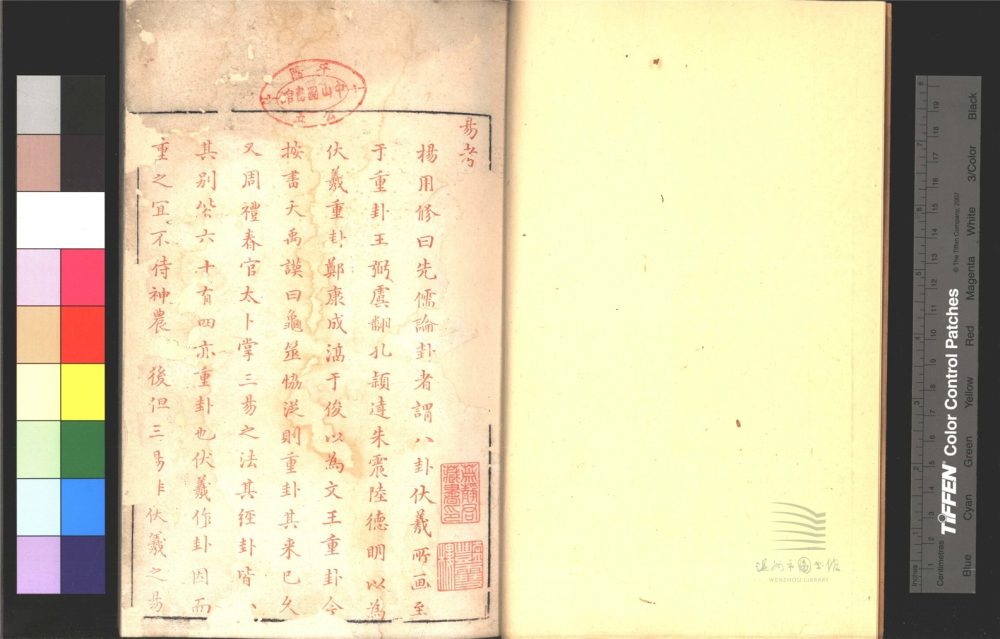 易考
楊用修曰先儒論卦者謂八卦伏羲所画至
于重卦王弼虞翻孔穎達朱震陸德明以為
伏羲重卦鄭康成淳于俊以為文王重卦今
按書大禹謨曰龜筮恊從則重卦其来已久
又周禮春官太卜掌三易之法其經卦皆八
其别皆六十有四亦重卦也伏羲作卦因而
重之冝不待神農後但三易上伏羲之易
中山圖書館
溫州市圖書館
WENZHOU LIBRARY
TIFFEN Color Control Patches
© The Tiffen Company, 2007
Inches
Centimetres
Blue
Cyan
Green
Yellow
Red
Magenta
White
3/Color
Black